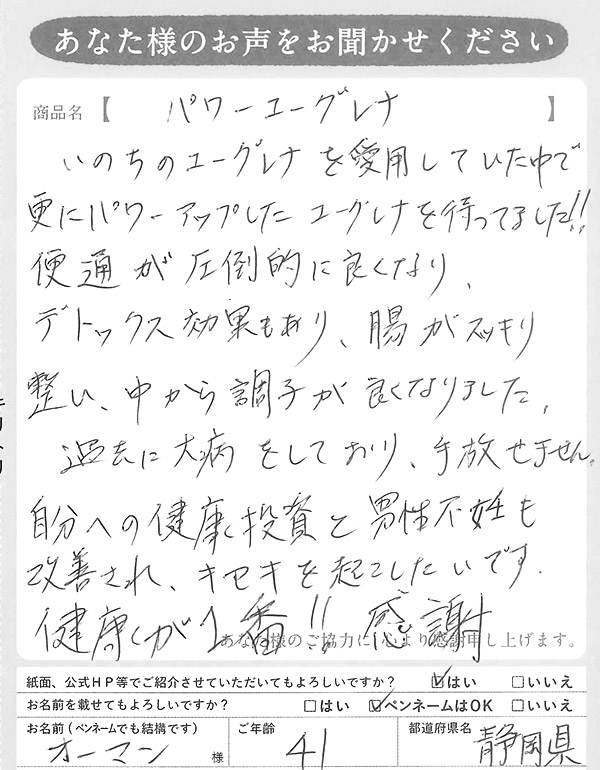 あなた様のお声をお聞かせください
商品名【 パワーユーグレナ 】
いのちのユーグレナを愛用していた中で
更にパワーアップしたユーグレナを待ってました!!
便通が圧倒的に良くなり、
デトックス効果もあり、腸がスッキリ
整い、中から調子が良くなりました。
過去に大病をしており、手放せません。
自分への健康投資と男性不妊も
改善され、キセキを起こしたいです。
健康が1番!! 感謝
あなた様のご協力に心より感謝申し上げます。
紙面、公式HP等でご紹介させていただいてもよろしいですか? ☑はい □いいえ
お名前を載せてもよろしいですか? □はい ☑ペンネームはOK □いいえ
お名前(ペンネームでも結構です) ご年齢 都道府県名
オーマン 様 41 静岡県